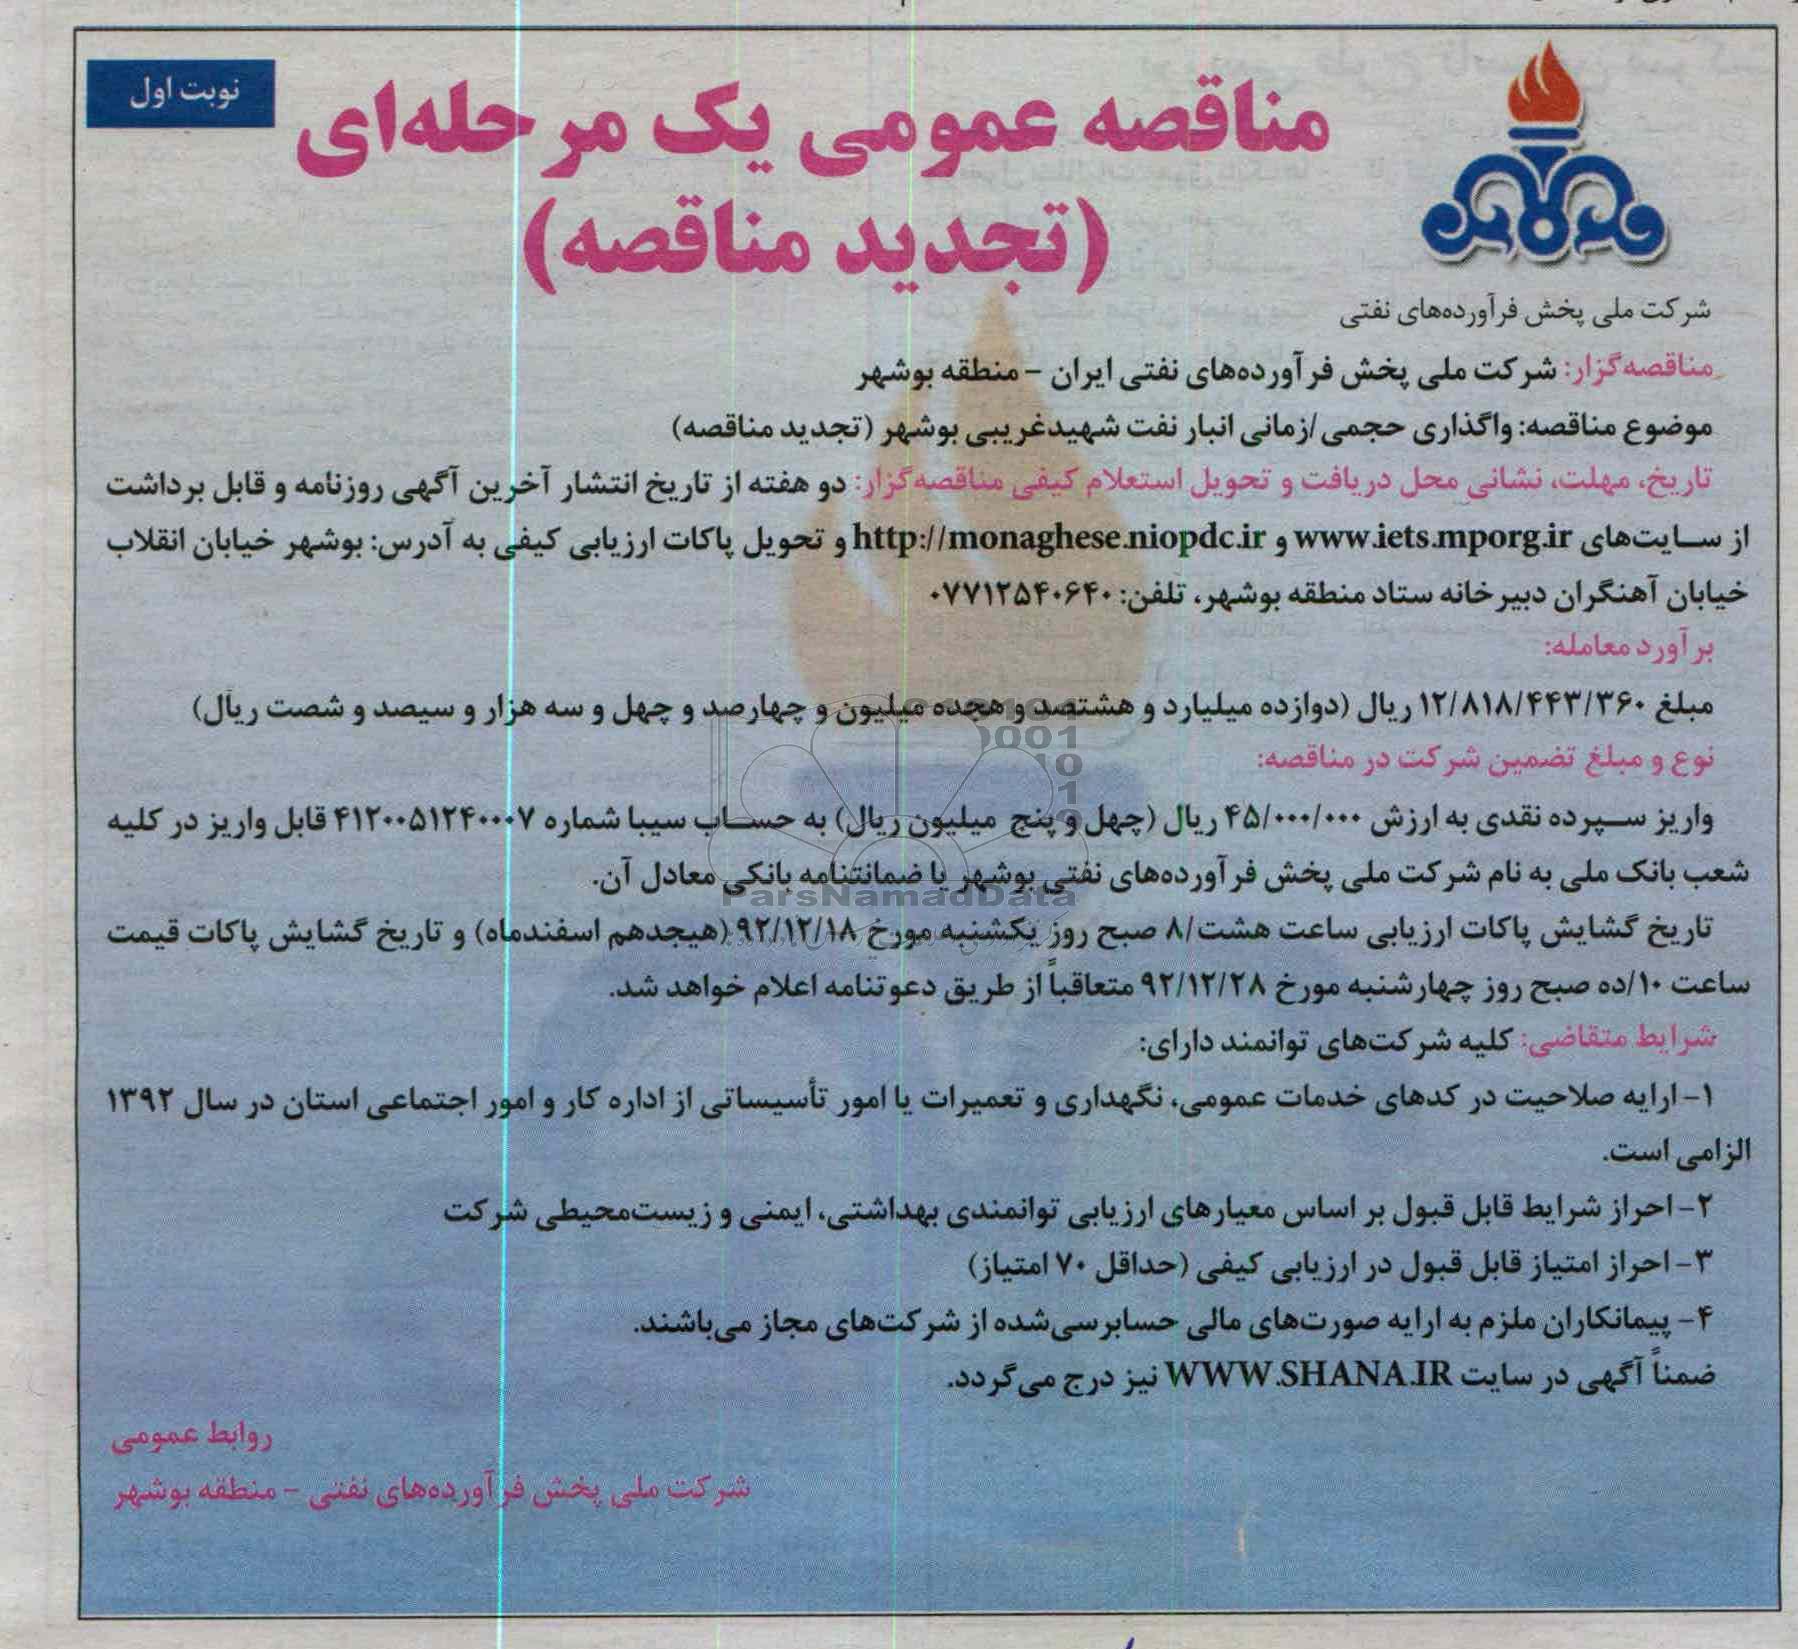 نوبت اول
مناقصه عمومی یک مرحله‌ای
(تجدید مناقصه)
شرکت ملی پخش فرآورده‌های نفتی
مناقصه‌گزار: شرکت ملی پخش فرآورده‌های نفتی ایران - منطقه بوشهر
موضوع مناقصه: واگذاری حجمی/زمانی انبار نفت شهیدغریبی بوشهر (تجدید مناقصه)
تاریخ، مهلت، نشانی محل دریافت و تحویل استعلام کیفی مناقصه‌گزار: دو هفته از تاریخ انتشار آخرین آگهی روزنامه و قابل برداشت
از سایت‌های www.iets.mporg.ir و http://monaghese.niopdc.ir و تحویل پاکات ارزیابی کیفی به آدرس: بوشهر خیابان انقلاب
خیابان آهنگران دبیرخانه ستاد منطقه بوشهر، تلفن: ۰۷۷۱۲۵۴۰۶۴۰
برآورد معامله:
مبلغ ۱۲/۸۱۸/۴۴۳/۳۶۰ ریال (دوازده میلیارد و هشتصد و هجده میلیون و چهارصد و چهل و سه هزار و سیصد و شصت ریال)
نوع و مبلغ تضمین شرکت در مناقصه:
واریز سپرده نقدی به ارزش ۴۵/۰۰۰/۰۰۰ ریال (چهل و پنج میلیون ریال) به حساب سیبا شماره ۴۱۲۰۰۵۱۲۴۰۰۰۷ قابل واریز در کلیه
شعب بانک ملی به نام شرکت ملی پخش فرآورده‌های نفتی بوشهر یا ضمانتنامه بانکی معادل آن.
تاریخ گشایش پاکات ارزیابی ساعت هشت/۸ صبح روز یکشنبه مورخ ۹۲/۱۲/۱۸ (هیجدهم اسفندماه) و تاریخ گشایش پاکات قیمت
ساعت ۱۰/ده صبح روز چهارشنبه مورخ ۹۲/۱۲/۲۸ متعاقباً از طریق دعوتنامه اعلام خواهد شد.
شرایط متقاضی: کلیه شرکت‌های توانمند دارای:
۱- ارایه صلاحیت در کدهای خدمات عمومی، نگهداری و تعمیرات یا امور تأسیساتی از اداره کار و امور اجتماعی استان در سال ۱۳۹۲
الزامی است.
۲- احراز شرایط قابل قبول بر اساس معیارهای ارزیابی توانمندی بهداشتی، ایمنی و زیست‌محیطی شرکت
۳- احراز امتیاز قابل قبول در ارزیابی کیفی (حداقل ۷۰ امتیاز)
۴- پیمانکاران ملزم به ارایه صورت‌های مالی حسابرسی‌شده از شرکت‌های مجاز می‌باشند.
ضمناً آگهی در سایت WWW.SHANA.IR نیز درج می‌گردد.
روابط عمومی
شرکت ملی پخش فرآورده‌های نفتی - منطقه بوشهر
ParsNamadData